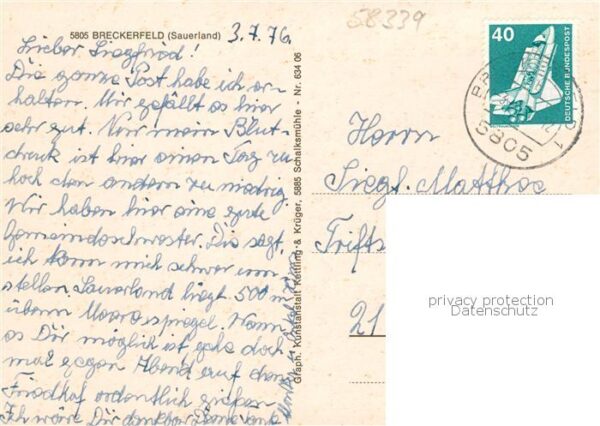 58339
5805 BRECKERFELD (Sauerland)
3.7.76
Lieber Siegfried!
Die ganze Post habe ich er-
halten. Mir gefällt es hier
sehr gut. Nur mein Blut-
druck ist hier einen Tag zu
hoch den andern zu niedrig.
Wir haben hier eine gute
Gemeindeschwester. Die sagt,
ich kann mich schwer um
stellen. Sauerland liegt 500 m
überm Meeresspiegel. Wenn
es Dir möglich ist gehe doch
mal gegen Abend auf den
Friedhof ordentlich gießen
Ich wäre Dir dankbar
Graph. Kunstanstalt Kettling & Krüger, 5885 Schalksmühle - Nr. 634 06
40
DEUTSCHE BUNDESPOST
5805
Herrn
Siegf. Matthes
Trifts
21
privacy protection
Datenschutz